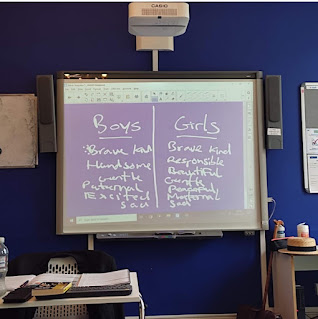 CASIO
Boys
Brave Kind
Handsome
Gentle
Paternal
Excited
Sad
Girls
Brave Kind
Responsible
Beautiful
Gentle
Peaceful
Maternal
Sad